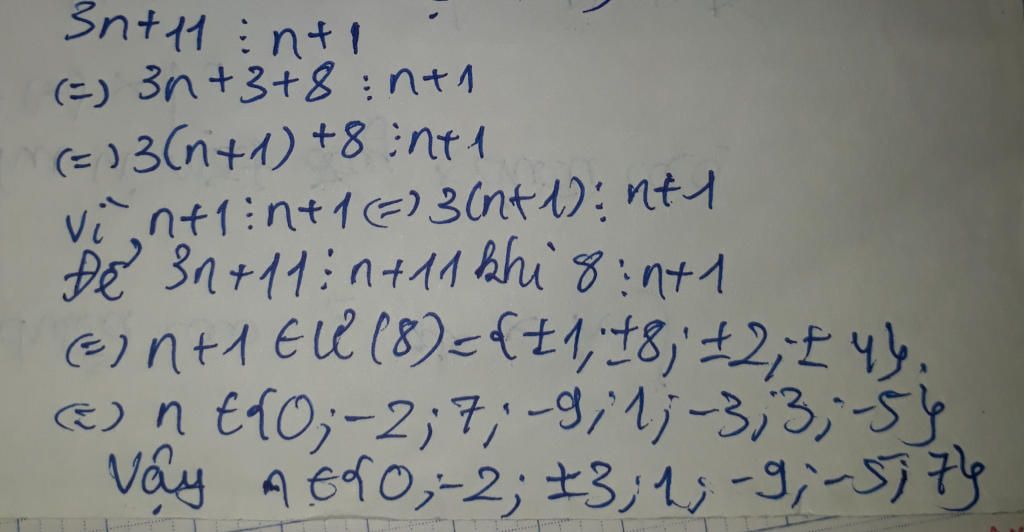 3n+11 ⋮ n+1
(=) 3n+3+8 ⋮ n+1
(=) 3(n+1) +8 ⋮ n+1
Vì n+1 ⋮ n+1 (=) 3(n+1) ⋮ n+1
Để 3n+11 ⋮ n+11 khi 8 ⋮ n+1
(=) n+1 ∈ Ư(8) = {±1; ±8; ±2; ±4}.
(=) n ∈ {0; -2; 7; -9; 1; -3; 3; -5}
Vậy n ∈ {0; -2; ±3; 1; -9; -5; 7}